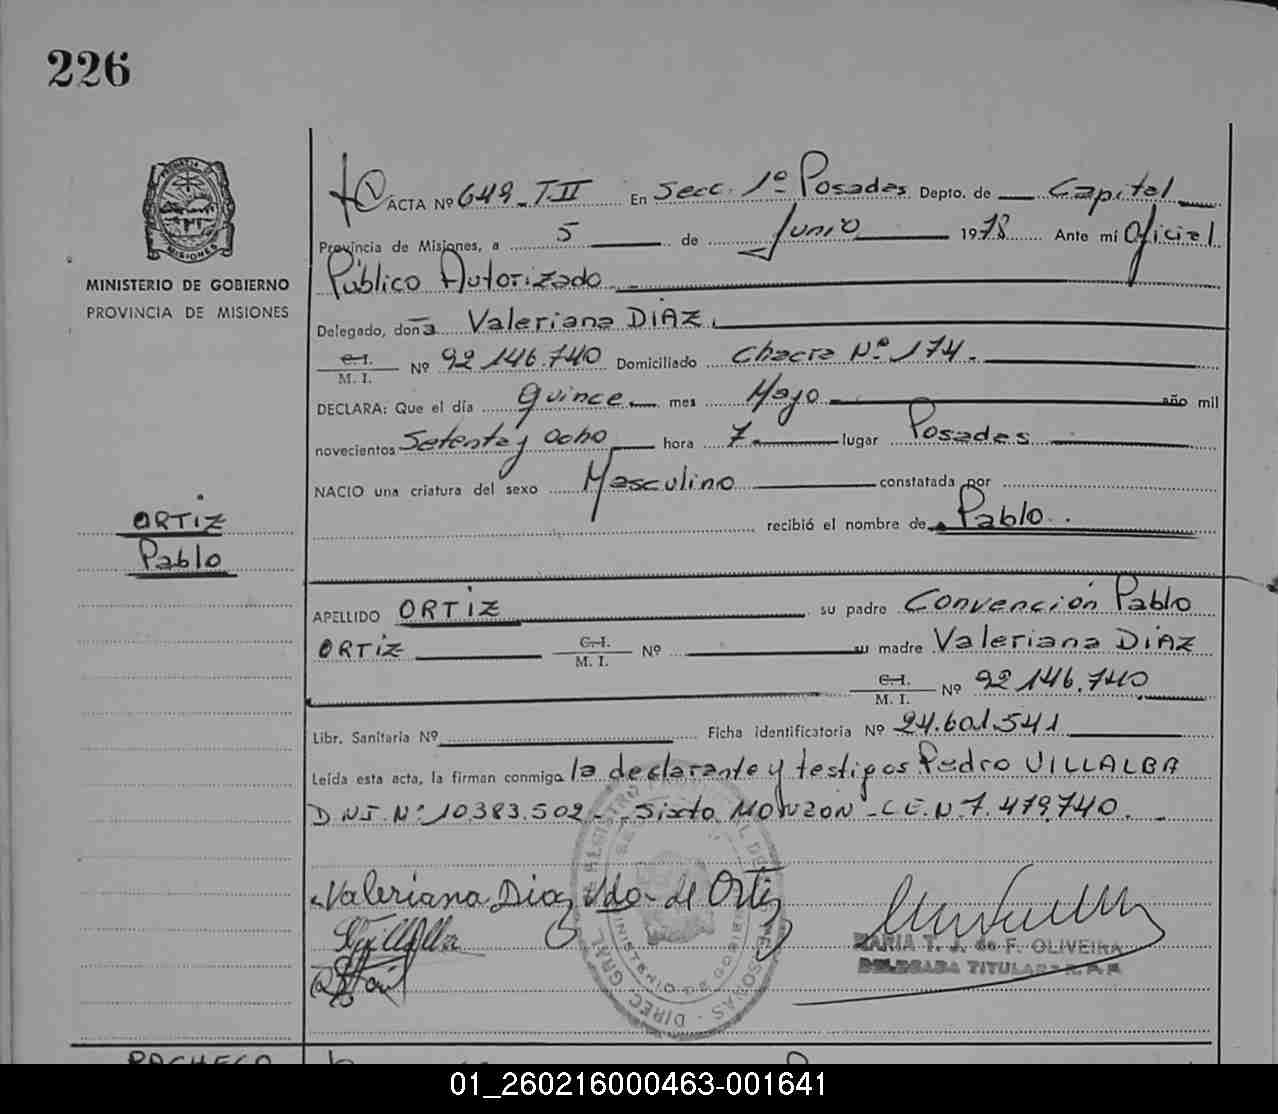 226
MINISTERIO DE GOBIERNO
PROVINCIA DE MISIONES
ORTIZ
Pablo
ACTA Nº 649 - T.II En Secc. 1º Posadas Depto. de Capital
Provincia de Misiones, a 5 de Junio 1978 Ante mi Oficial
Público Autorizado
Delegado, doña Valeriana DIAZ.
C.I.
M. I. Nº 92.146.740 Domiciliado Chacra Nº 174.
DECLARA: Que el día quince mes Mayo año mil
novecientos Setenta y Ocho hora 7 lugar Posadas
NACIO una criatura del sexo Masculino constatada por
recibió el nombre de Pablo.
APELLIDO ORTIZ su padre Convención Pablo
ORTIZ C.I. M. I. Nº su madre Valeriana DIAZ
C.I. M. I. Nº 92.146.740
Libr. Sanitaria Nº Ficha identificatoria Nº 24.601.541
Leída esta acta, la firman conmigo la declarante y testigos Pedro VILLALBA
DNI. Nº 10.383.502 - Sixto MONZON - C.E. N 7.479.740.
Valeriana Diaz Vdo. de Ortiz
MARIA T. J. de F. OLIVEIRA
DELEGADA TITULAR R. P. P.
DIREC. GRAL. REGISTRO PERSONAS
MINISTERIO DE GOBIERNO
PACHECO
01_260216000463-001641